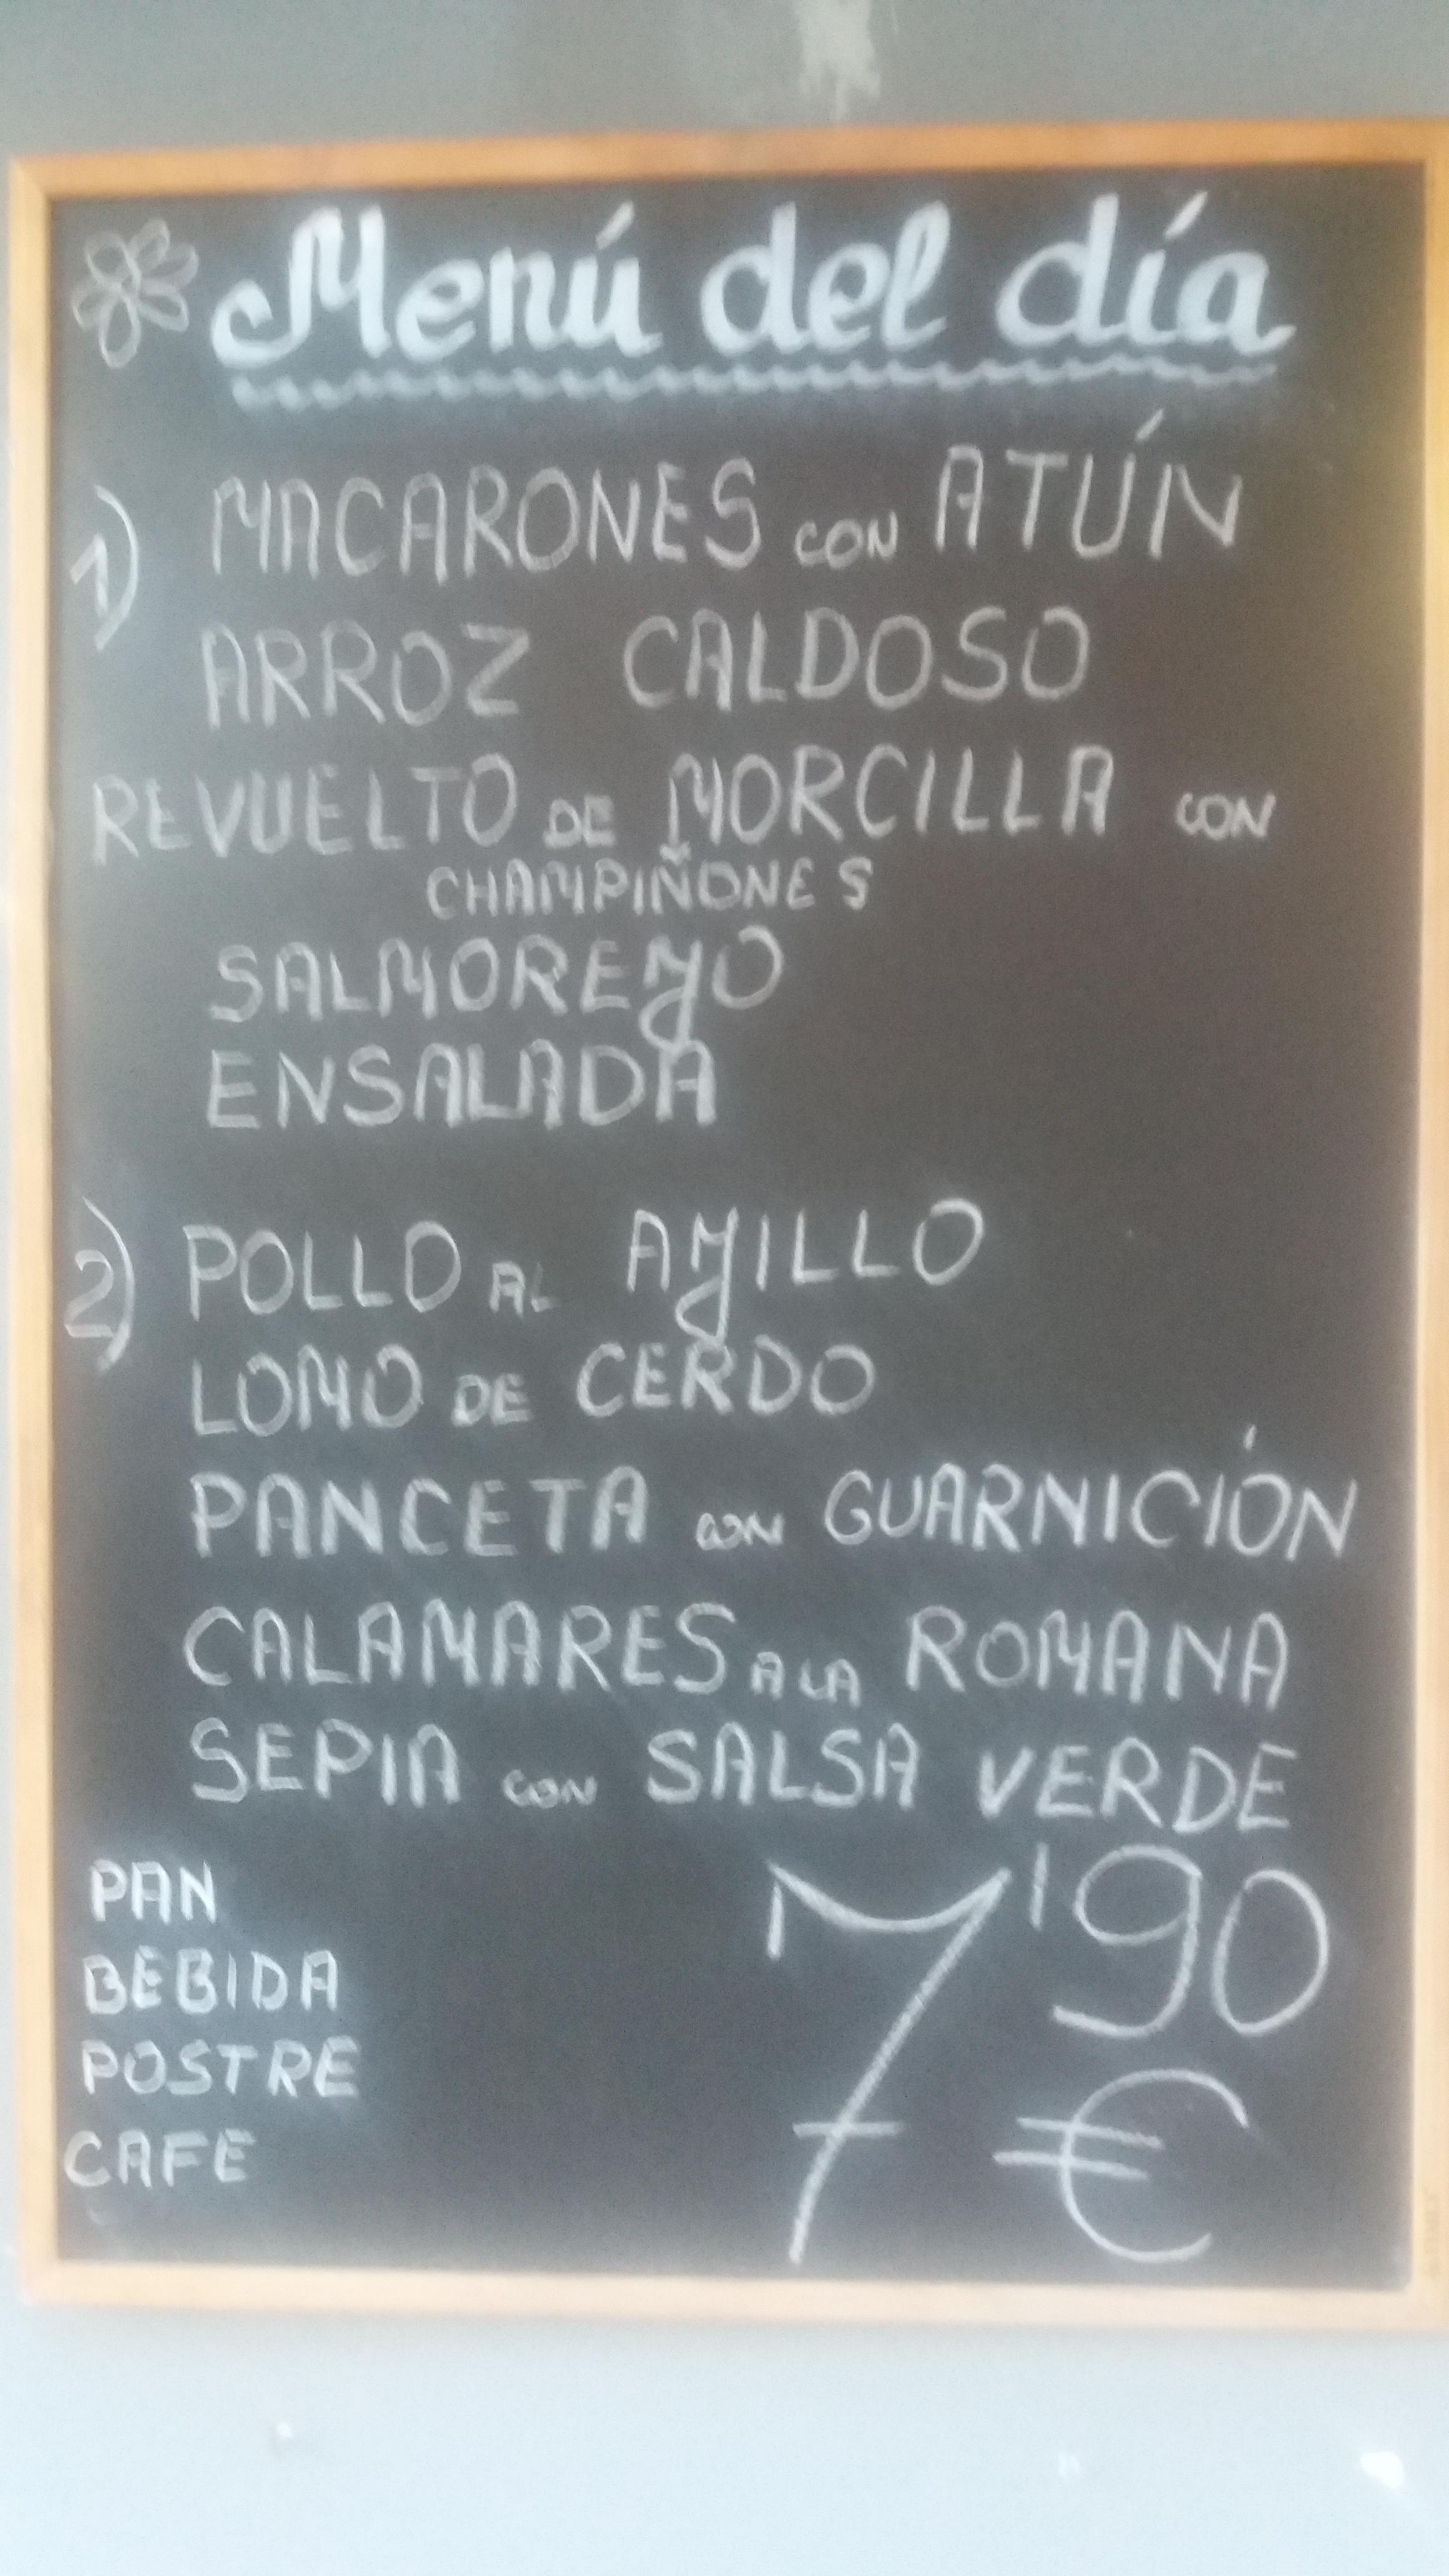 Menú del día
1) MACARONES CON ATÚN
ARROZ CALDOSO
REVUELTO DE MORCILLA CON
CHAMPIÑONES
SALMOREJO
ENSALADA
2) POLLO AL AJILLO
LOMO DE CERDO
PANCETA CON GUARNICIÓN
CALAMARES A LA ROMANA
SEPIA CON SALSA VERDE
PAN
BEBIDA
POSTRE
CAFE
7'90
€